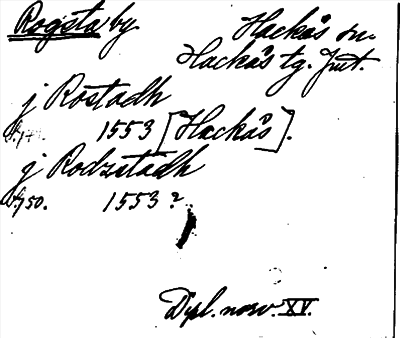 Rogsta by.
Hackås sn.
Hackås tg. Jmt.
j Rostadh
1553 [Hackås].
j Rodzstadh
s. 750. 1553?
Dipl. norv. XV.